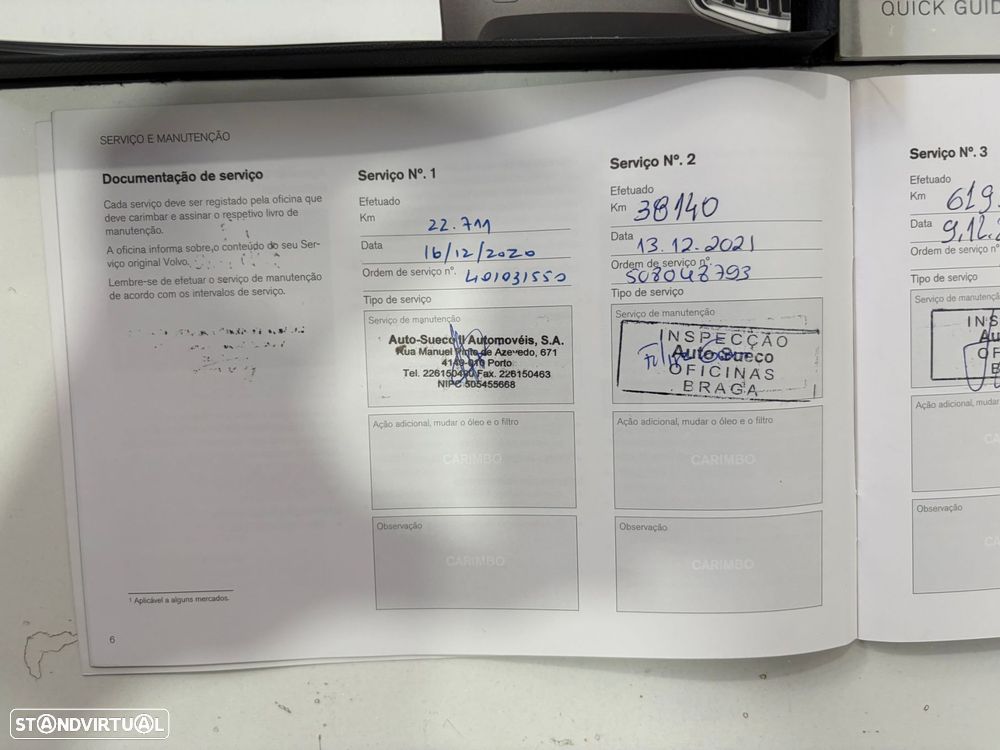 QUICK GUID
SERVIÇO E MANUTENÇÃO
Documentação de serviço
Cada serviço deve ser registado pela oficina que
deve carimbar e assinar o respetivo livro de
manutenção.
A oficina informa sobre o conteúdo do seu Ser-
viço original Volvo.
Lembre-se de efetuar o serviço de manutenção
de acordo com os intervalos de serviço.
1 Aplicável a alguns mercados.
6
Serviço Nº. 1
Efetuado
Km 22.711
Data 16/12/2020
Ordem de serviço nº. 401031550
Tipo de serviço
Serviço de manutenção
Auto-Sueco II Automovéis, S.A.
Rua Manuel Pinto de Azevedo, 671
4149-010 Porto
Tel. 226150400 Fax. 226150463
NIPC 505455668
Ação adicional, mudar o óleo e o filtro
CARIMBO
Observação
CARIMBO
Serviço Nº. 2
Efetuado
Km 38140
Data 13.12.2021
Ordem de serviço nº. 508048793
Tipo de serviço
Serviço de manutenção
INSPECÇÃO
Auto Sueco
OFICINAS
BRAGA
Ação adicional, mudar o óleo e o filtro
CARIMBO
Observação
CARIMBO
Serviço Nº. 3
Efetuado
Km 619
Data 9.12.
Ordem de serviço nº
Tipo de serviço
Serviço de manutenção
INS
Au
OF
B
Ação adicional, mudar
CA
Observação
CA
STANDVIRTUAL